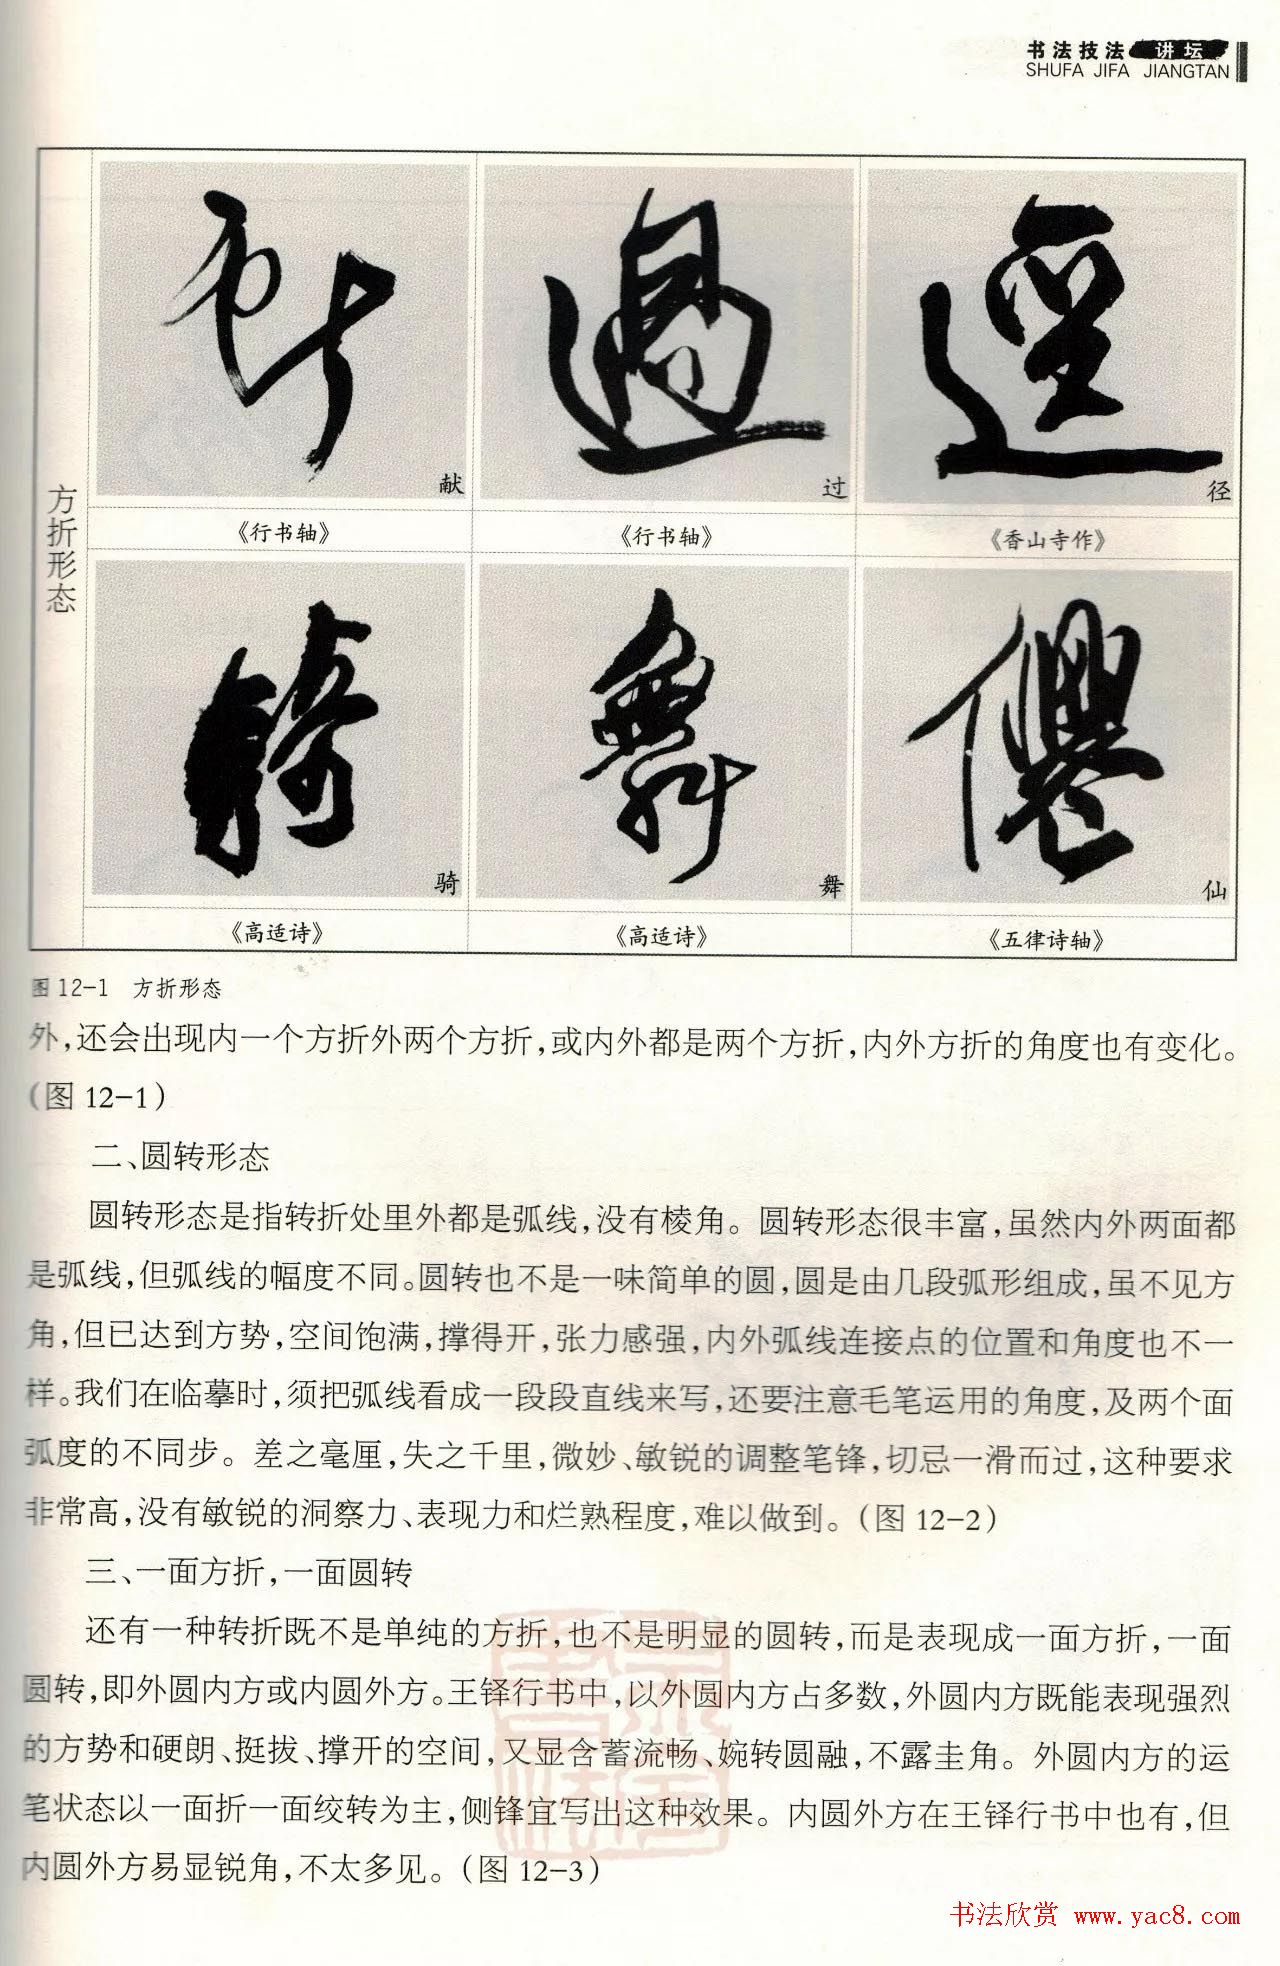 书法技法 讲坛
SHUFA JIFA JIANGTAN
方折形态
献
过
径
《行书轴》
《行书轴》
《香山寺作》
骑
舞
仙
《高适诗》
《高适诗》
《五律诗轴》
图 12-1 方折形态
外，还会出现内一个方折外两个方折，或内外都是两个方折，内外方折的角度也有变化。
（图 12-1）
二、圆转形态
圆转形态是指转折处里外都是弧线，没有棱角。圆转形态很丰富，虽然内外两面都
是弧线，但弧线的幅度不同。圆转也不是一味简单的圆，圆是由几段弧形组成，虽不见方
角，但已达到方势，空间饱满，撑得开，张力感强，内外弧线连接点的位置和角度也不一
样。我们在临摹时，须把弧线看成一段段直线来写，还要注意毛笔运用的角度，及两个面
弧度的不同步。差之毫厘，失之千里，微妙、敏锐的调整笔锋，切忌一滑而过，这种要求
非常高，没有敏锐的洞察力、表现力和烂熟程度，难以做到。（图 12-2）
三、一面方折，一面圆转
还有一种转折既不是单纯的方折，也不是明显的圆转，而是表现成一面方折，一面
圆转，即外圆内方或内圆外方。王铎行书中，以外圆内方占多数，外圆内方既能表现强烈
的方势和硬朗、挺拔、撑开的空间，又显含蓄流畅、婉转圆融，不露圭角。外圆内方的运
笔状态以一面折一面绞转为主，侧锋宜写出这种效果。内圆外方在王铎行书中也有，但
内圆外方易显锐角，不太多见。（图 12-3）
书法欣赏 www.yac8.com